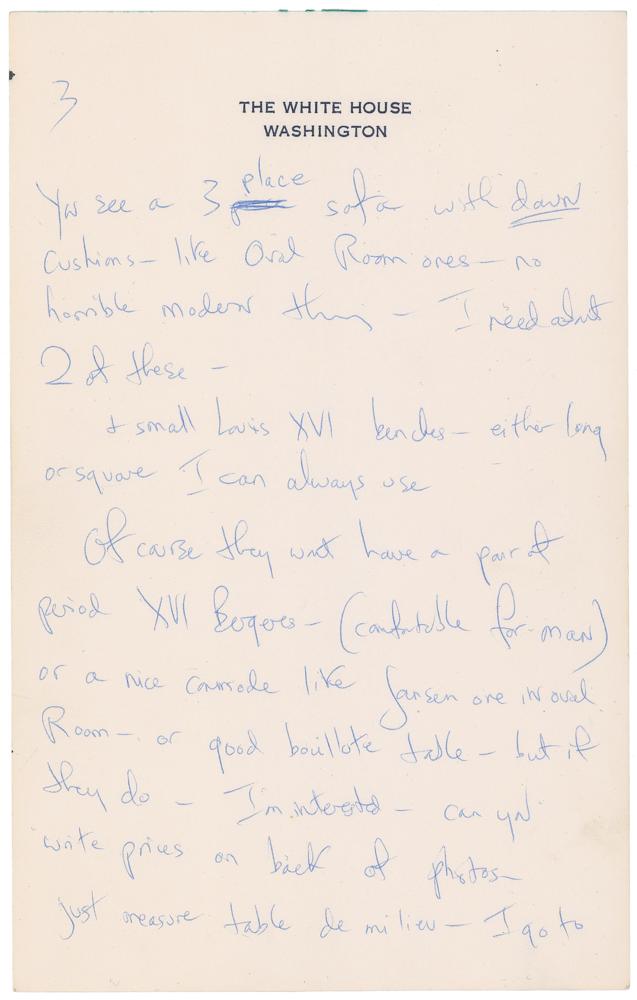 3
THE WHITE HOUSE
WASHINGTON
place
You see a 3 sofa with down
cushions - like Oval Room ones - no
horrible modern thing - I need about
2 of these -
+ small Louis XVI benches - either long
or square I can always use
Of course they wont have a pair of
period XVI Bergeres - (comfortable for man)
or a nice commode like Jansen one in oval
Room - or good bouillote table - but if
they do - I'm interested - can you
write prices on back of photos -
just measure table de milieu - I go to